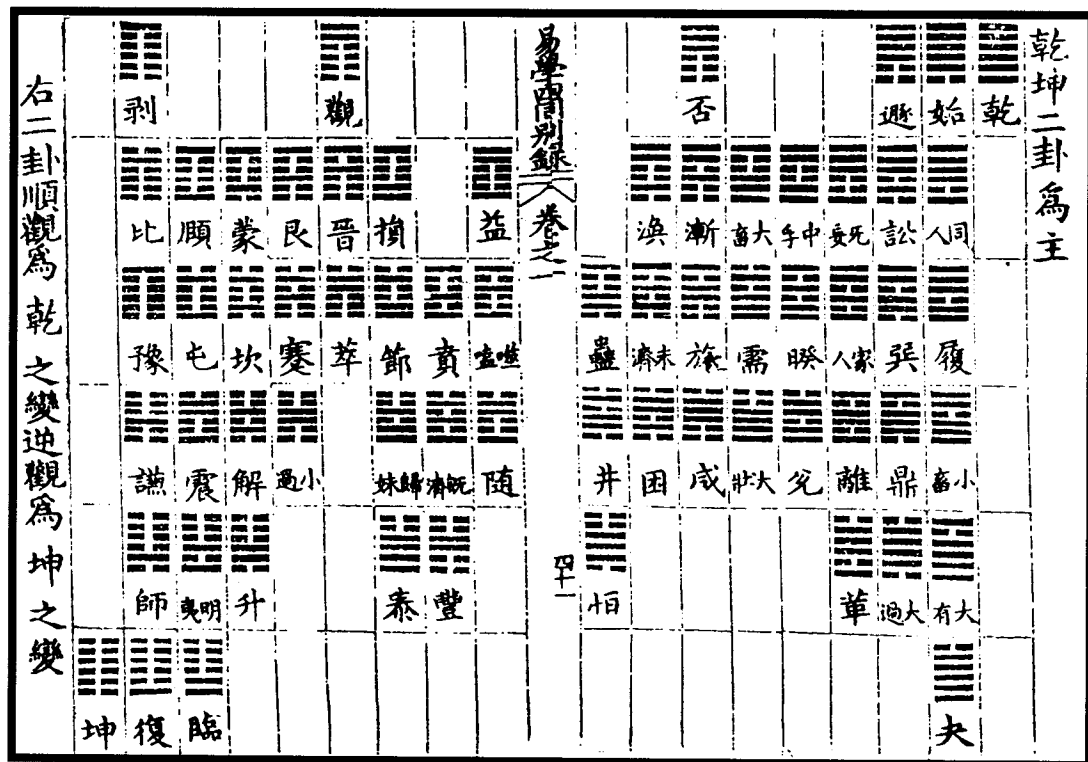 乾坤二卦為主
乾
姤
同人
履
小畜
大有
夬
遯
訟
巽
鼎
大過
无妄
家人
離
革
中孚
睽
兌
大畜
需
大壯
否
漸
旅
咸
渙
未濟
困
蠱
井
恒
易學別錄
卷之一
四十一
益
噬嗑
随
賁
既濟
豐
損
節
歸妹
泰
觀
晉
萃
艮
蹇
小過
蒙
坎
解
升
頤
屯
震
明夷
臨
剥
比
豫
謙
師
復
坤
右二卦順觀為乾之變逆觀為坤之變